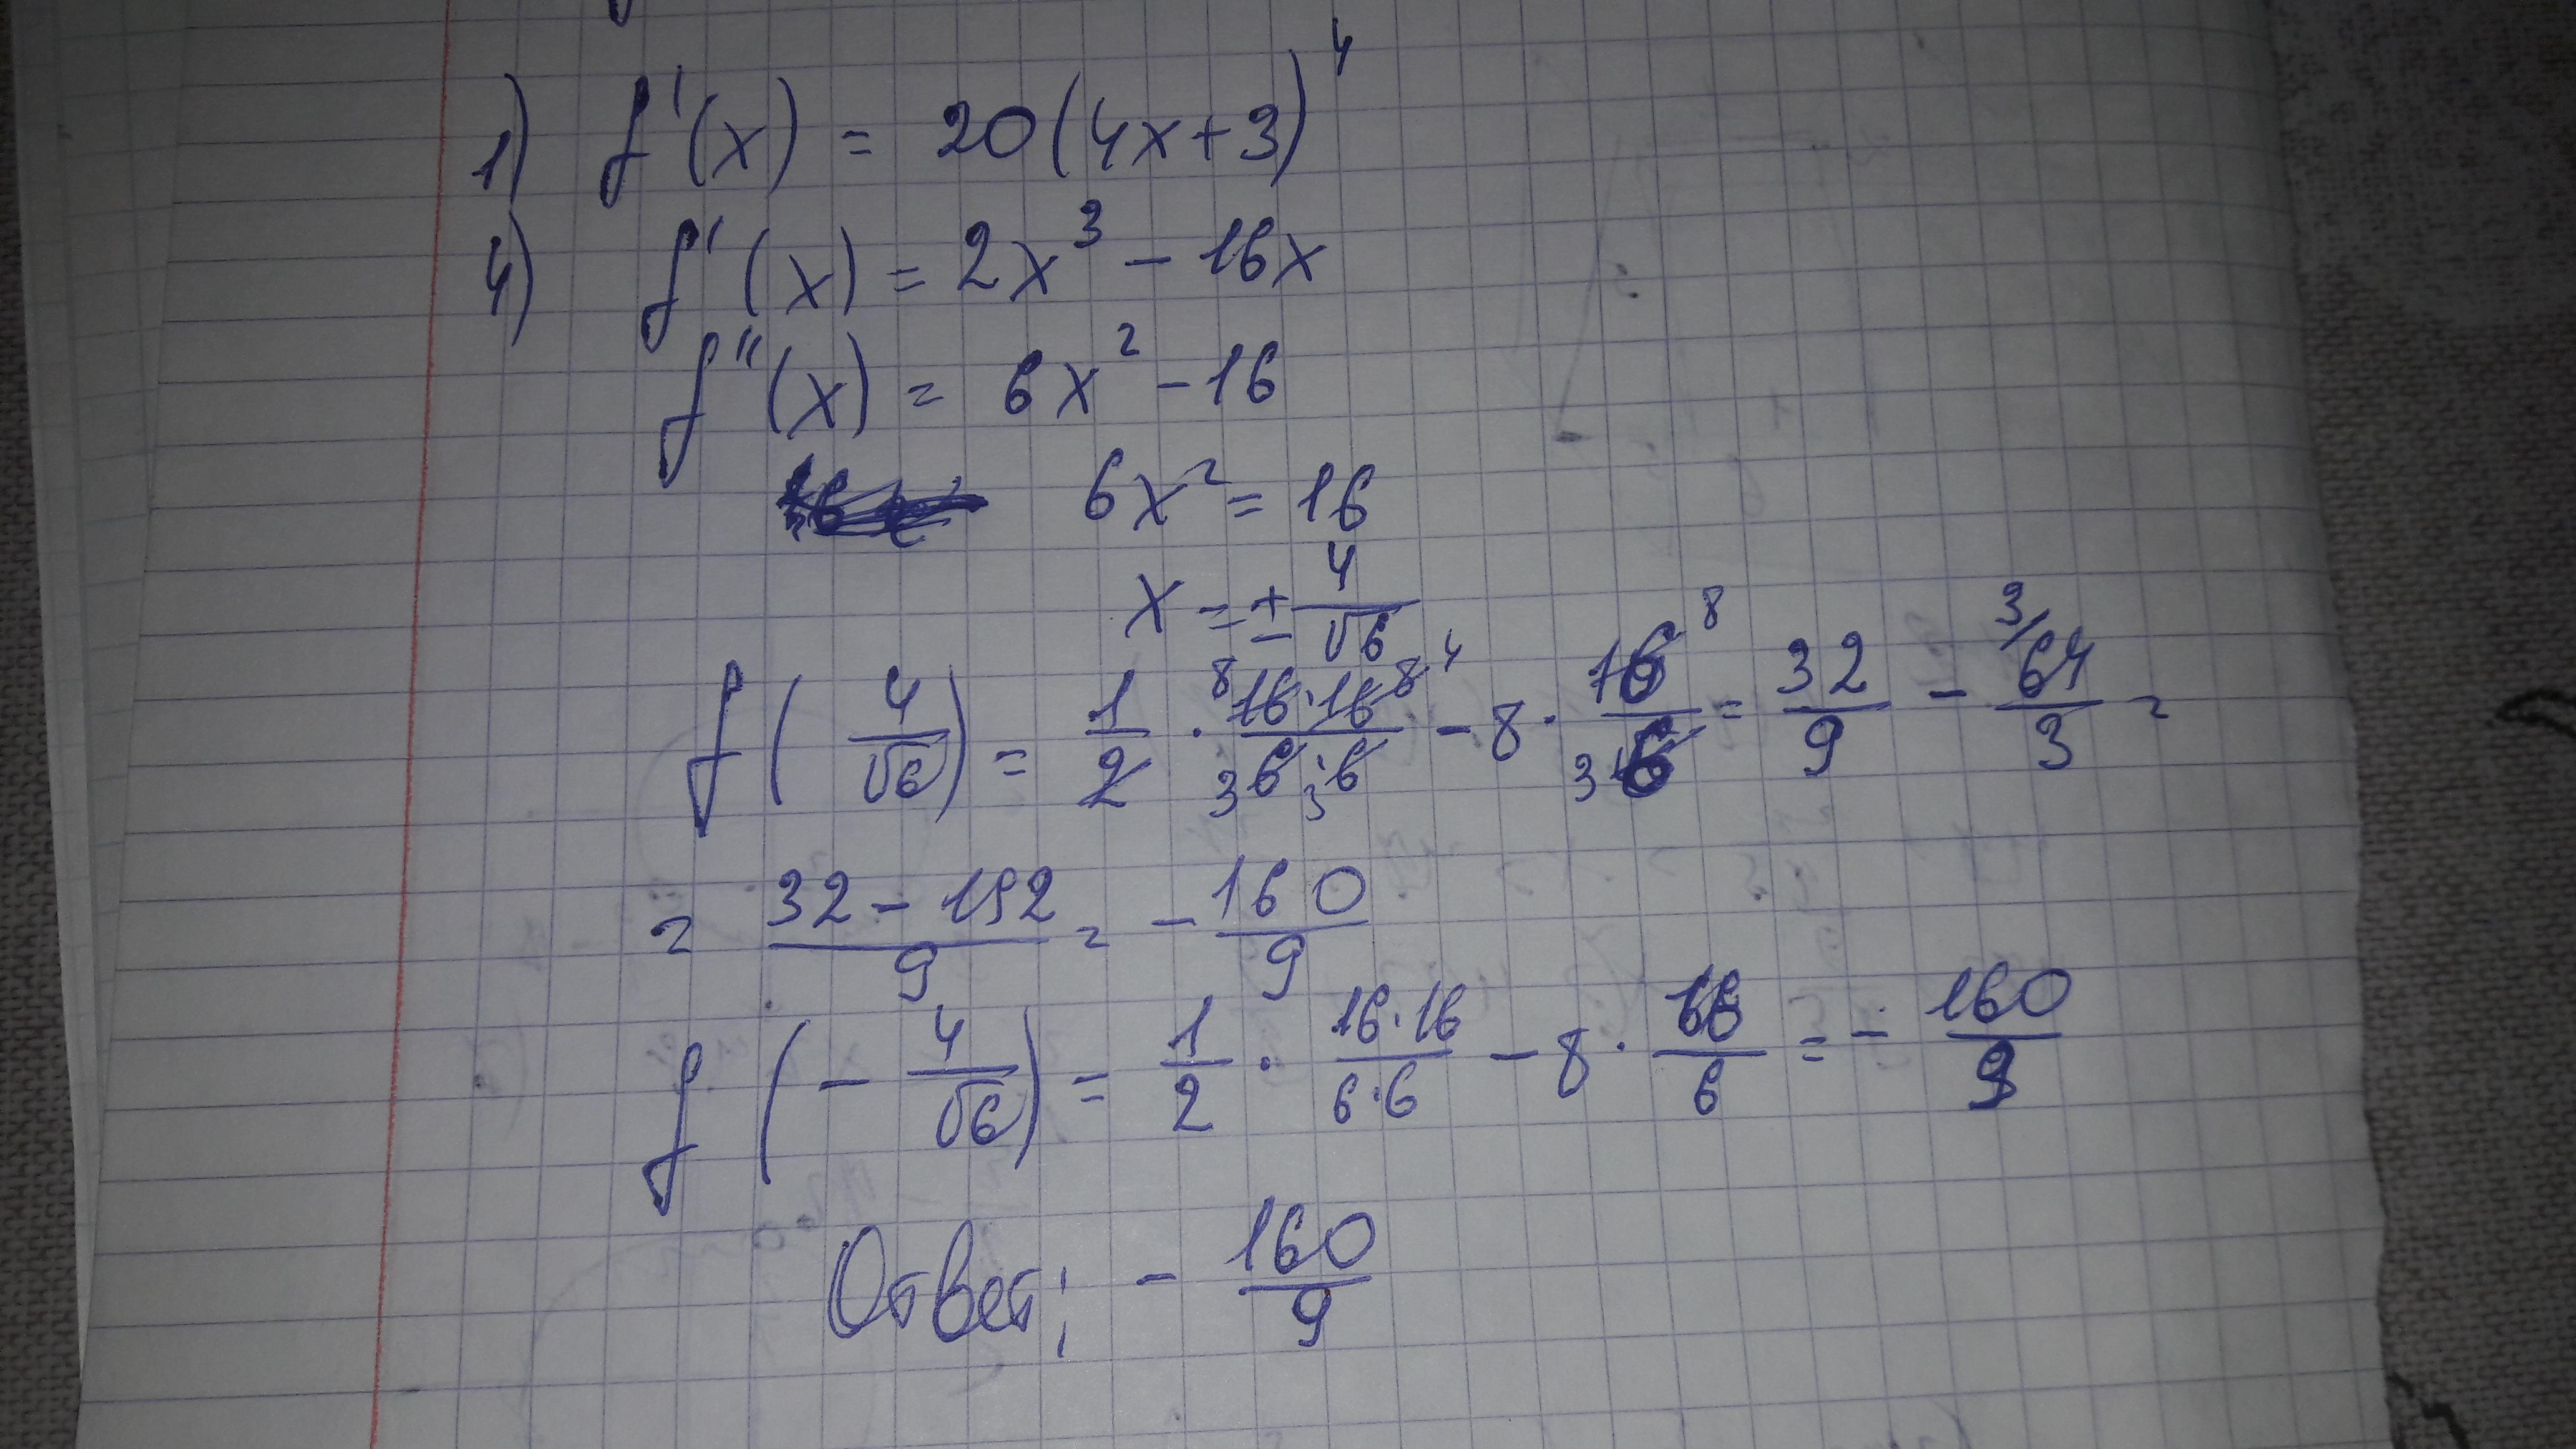 1) f'(x) = 20(4x+3)^4
4) f'(x) = 2x^3 - 16x
f''(x) = 6x^2 - 16
6x^2 = 16
x = ± 4/√6
f(4/√6) = 1/2 · 16·16/6·6 - 8 · 16/6 = 32/9 - 64/3 =
= 32-192/9 = - 160/9
f(- 4/√6) = 1/2 · 16·16/6·6 - 8 · 16/6 = - 160/9
Ответ: - 160/9